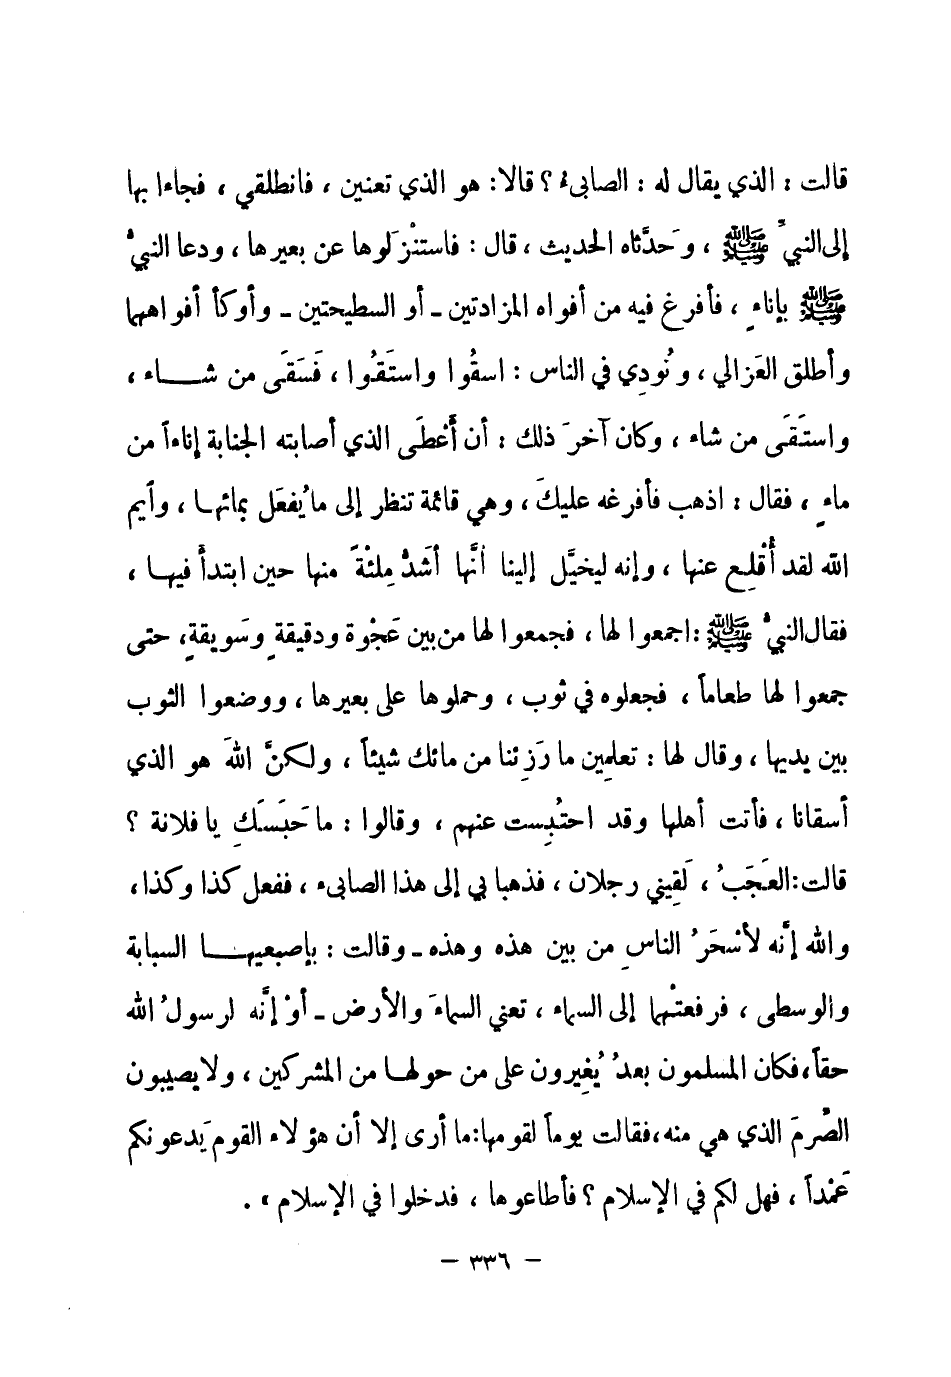 قالت : الذي يقال له : الصابىء ؟ قالا : هو الذي تعنين ، فانطلقي ، فجاءا بها
إلى النبيِّ ﷺ ، وحَدَّثاه الحديث ، قال : فاستنْزَلوها عن بعيرها ، ودعا النبيُّ
ﷺ بإناءٍ ، فأفرغ فيه من أفواه المزادتين ـ أو السطيحتين ـ وأوكأ أفواههما
وأطلق العَزالي ، ونُودِي في الناس : اسقُوا واستَقُوا ، فَسَقَى من شـاء ،
واستَقَى من شاء ، وكان آخرَ ذلك : أن أَعْطَى الذي أصابته الجنابة إناءاً من
ماءٍ ، فقال : اذهب فأفرغه عليكَ ، وهي قائمة تنظر إلى ما يُفعَل بمائها ، وأيم
الله لقد أُقْلِع عنها ، وإنه ليخيَّل إلينا أنَّها أشَدُّ مِلئْةً منها حين ابتدأ فيها ،
فقال النبيُّ ﷺ : اجمعوا لها ، فجمعوا لها من بين عَجْوة ودقيقةٍ وسَويقةٍ، حتى
جمعوا لها طعاماً ، فجعلوه في ثوب ، وحملوها على بعيرها ، ووضعوا الثوب
بين يديها ، وقال لها : تعلمِين ما رَزِئنا من مائك شيئاً ، ولكنَّ اللهَ هو الذي
أسقانا ، فأتت أهلها وقد احتُبِست عنهم ، وقالوا : ما حَبَسَكِ يا فلانة ؟
قالت : العَجَبُ ، لَقِيني رجلان ، فذهبا بي إلى هذا الصابىء ، ففعل كذا وكذا ،
والله إنَّه لأسْحَرُ الناسِ من بين هذه وهذه ـ وقالت : بإصبعيهـا السبابة
والوسطى ، فرفعتْهما إلى السماء ، تعني السماءَ والأرض ـ أوْ إنَّه لرسولُ الله
حقاً، فكان المسلمون بعدُ يُغِيرون على من حولها من المشركين ، ولا يصيبون
الصِّرمَ الذي هي منه، فقالت يوماً لقومها: ما أرى إلا أن هؤلاء القوم يَدعونكم
عَمْداً ، فهل لكم في الإسلام ؟ فأطاعوها ، فدخلوا في الإسلام » .
– ٣٣٦ –